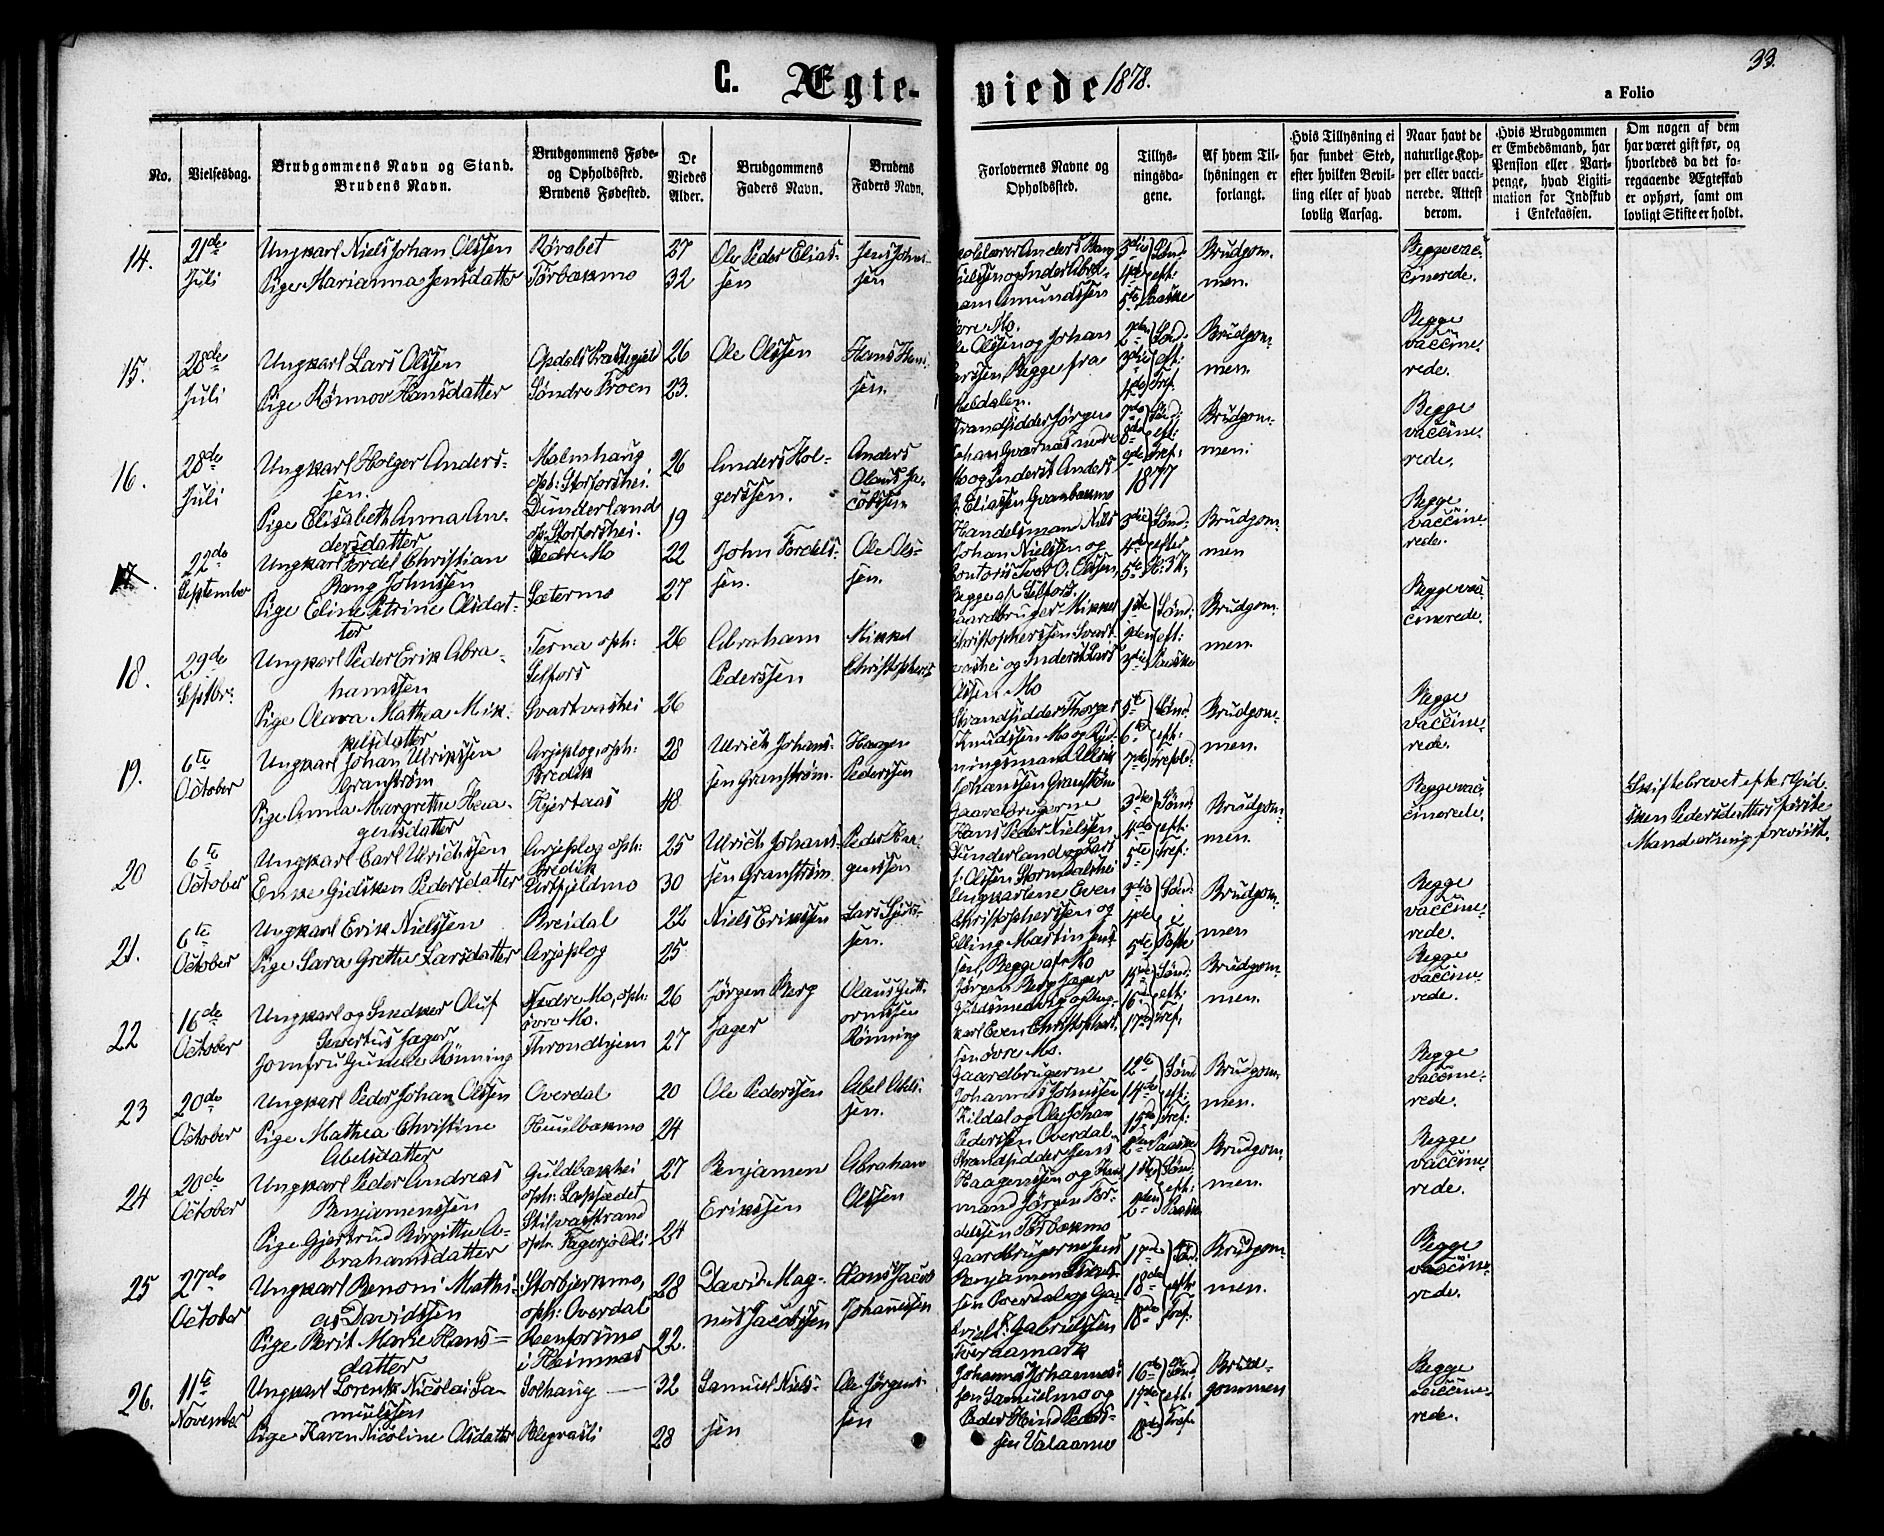 C. Ægte-
viede 1878.
33.
a Folio
No.
Vielsesdag.
Brudgommens Navn og Stand.
Brudens Navn.
Brudgommens Føde-
og Opholdssted.
Brudens Fødested.
De
Viedes
Alder.
Brudgommens
Faders Navn.
Brudens
Faders Navn.
Forlovernes Navne og
Opholdssted.
Tillys-
ningsda-
gene.
Af hvem Til-
lysningen er
forlangt.
Hvis Tillysning ei
har fundet Sted,
efter hvilken Bevil-
ling eller af hvad
lovlig Aarsag.
Naar havt de
naturlige Kop-
per eller vacci-
nerede. Attest
herom.
Hvis Brudgommen
er Embedsmand, har
Pension eller Vart-
penge, hvad Ligiti-
mation for Indskud
i Enkekassen.
Om nogen af dem
har været gift før, og
hvorledes da det fo-
regaaende Ægteskab
er ophørt, samt om
lovligt Skifte er holdt.
14.
21de
Juli
Ungkarl Niels Johan Olssen
Pige Marianna Jensdatter
Rørabet
Torbækmo
27
32
Ole Peder Elias-
sen
Jens Johns-
sen
Anders Bang
Nielssen og Inderst Abra-
ham Amundssen
øvre Mo.
3die Sønd:
4de eft:
5te Paaske
Brudgom-
men.
Begge vac-
cinerede.
15.
28de
Juli
Ungkarl Lars Olssen
Pige Rønnov Hansdatter
Opdals Præstegjeld
Søndre Troen
26
23.
Ole Olssen
Hans Han-
sen.
Ole Olssen og Johan
Larssen, Begge fra
2den Sønd:
3die eft:
4de Tref.
Brudgom-
men.
Begge
vaccine-
rede.
16.
28de
Juli
Ungkarl Holger Anders-
sen.
Pige Elisabeth Anna An-
dersdatter
Malmhaug
oph: Storforshei.
Dunderland
oph: Storforshei.
26
19
Anders Hol-
gerssen.
Anders
Olaus Ja-
cobssen
Strandsidder Jørgen
Johan Qvarnæs nedre
Mo og Inderst Anders
J. Eliassen Granbækmo
Sønd:
8de eft:
9de Tref:
1877
Brudgom-
men:
Begge
vaccine-
rede.
17.
22de
September
Ungkarl Tordel Christian
Bang Johnssen
Pige Eline Petrine Olsdat-
ter
Nedre Mo
Sætermo
22
27
John Tordels-
sen.
Ole Ols-
sen.
Handelsmand Nils
Johan Nielssen og
Contorist Iver O. Olssen,
Begge af Selfors.
3die Sønd:
4de efter
5te H: 3 K:
Brudgom-
men
Begge
vaccine-
rede.
18.
29de
Septbr:
Ungkarl Peder Erik Abra-
hamssen
Pige Olava Mathea Mik-
kelsdatter
Terna oph:
Selfors
Svartvashei
26
26
Abraham
Pederssen
Mikkel
Christophers
Gaardbruger Mikkel
Christopherssen Svart-
vashei og Inderst Lars
Olssen Mo
1ste Sønd:
2den eft:
3die Paaske
Brudgom-
men.
Begge vac-
cinerede.
19.
6te
October
Ungkarl Johan Ulrikssen
Granstrøm
Pige Anna Margrethe Haa-
gensdatter
Arjeplog, oph:
Bredik
Kjertaas
28
48
Ulrich Johans-
sen Granstrøm.
Haagen
Pederssen
Strandsidder Thorger
Knudssen Mo og Ryd-
ningsmand Ulrik
Johanssen Granstrøm
5te Sønd.
6te eft:
7de Trefold:
Brudgom-
men.
Begge
vaccine-
rede.
20
6te
October
Ungkarl Carl Ulrichssen
Enke Gidsken Pedersdatter
Arjeplog oph:
Bredik
Virkjeldmo
25
30
Ulrich Johans-
sen Granstrøm.
Peder Haa-
genssen
Gaardbrugerne
Hans Peder Nielssen
Dunderland og Lars
J. Olssen Stormdalshei
3die Sønd:
4de eft:
5te Tref:
Brudgom-
men.
Begge vac-
cinerede.
Skiftebrevet efter Gid-
sken Pedersdatters første
Mand arving forevist.
21.
6te
October
Ungkarl Erik Nielssen
Pige Sara Grethe Larsdatter
Breidal
Arjeplog
22
25
Niels Erikssen
Lars Sjuls-
sen.
Ungkarlene Even
Christopherssen og
Elling Martin Jens-
sen, Begge af Mo
3die Sønd:
4de i
5te Faste
Brudgom-
men
Begge
vaccine-
rede.
22
16de
October
Ungkarl og Snedker Oluf
Sivertus Jager
Jomfru Gunelie Rønning
Nedre Mo, oph:
øvre Mo.
Throndhjem
26
27
Jørgen Berg
Jager
Olaus Gutt-
ormssen
Rønning
Jørgen Berg Jager
Guldsmed Mo og Ung-
karl Even Christophers-
sen øvre Mo.
Sønd:
16de eft:
17de Tref:
Brudgom-
men.
Begge
vaccine-
rede.
23
20de
October
Ungkarl Peder Johan Olssen
Pige Mathea Christine
Abelsdatter
Overdal
Huulbækmo
20
24
Ole Pederssen
Abel Abels-
sen.
Gaardbrugerne
Johannes Johnssen
Kildal og Ole Johan
Pederssen Overdal
12te Sønd
14de eft:
15de Tref:
Brudgom-
men.
Begge
vaccine-
rede.
24
20de
October
Ungkarl Peder Andreas
Benjamenssen
Pige Gjertrud Birgitte A-
brahamsdatter
Guldbækhei
oph: Lapsædet
Stilvasstrand
oph: Fagerjoldi
27
24
Benjamen
Erikssen
Abraham
Olssen
Strandsidder Jens
Haagenssen og
mand Jørgen Tor-
delssen Torbækmo
2den Paaske
1ste Sønd:
2den eft:
Paaske
Brudgom-
men.
Begge
vaccine-
rede.
25
27de
October
Ungkarl Benoni Mathi-
as Davidssen
Pige Berit Marie Hans-
datter
Storbjerkmo,
oph: Overdal
Reenforsmo
i Hemnæs
28
22.
David Mag-
nus Jacobssen
Hans Jacob
Johanssen
Gaardbrugerne Jens
Benjamen Eriks-
sen Overdal og Ga-
briel K. Gabrielssen
Tveraamark
17de Sønd.
18de eft:
18de Tref:
Brudgom-
men.
Begge
vaccine-
rede.
26.
11te
November
Ungkarl Lorents Nicolai Sa-
muelssen
Pige Karen Nicoline Olsdatter
Solhaug
Blegvasli
32
28
Samuel Niels-
sen
Ole Jørgens-
sen
Johannes Johannes-
sen Samuelmo og
Peder Hind Peders-
sen Valaamo
16de Sønd
17de eft:
18de Tref:
Brud-
gommen
Begge
vaccine-
rede.